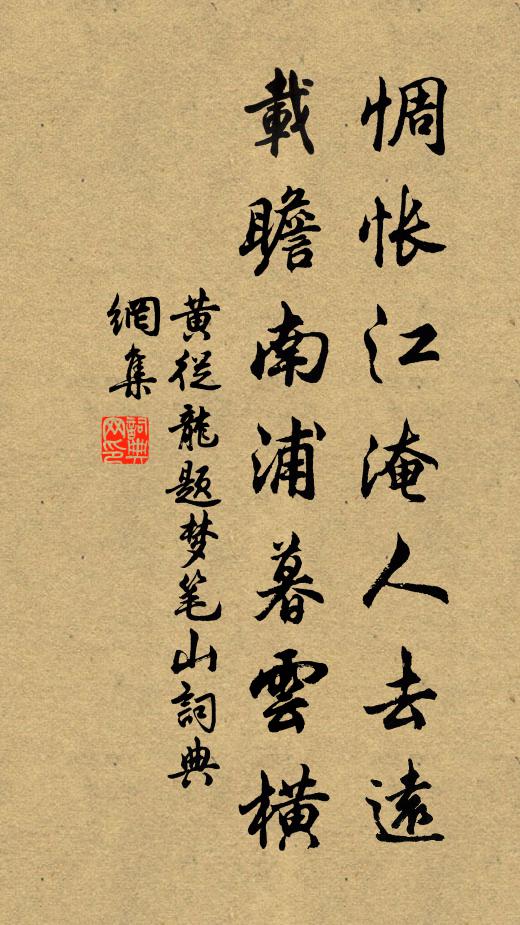 惆怅江淹人去遠
載瞻南浦暮雲橫
黄從龍題梦笔山詞典
網集
詞典
网印